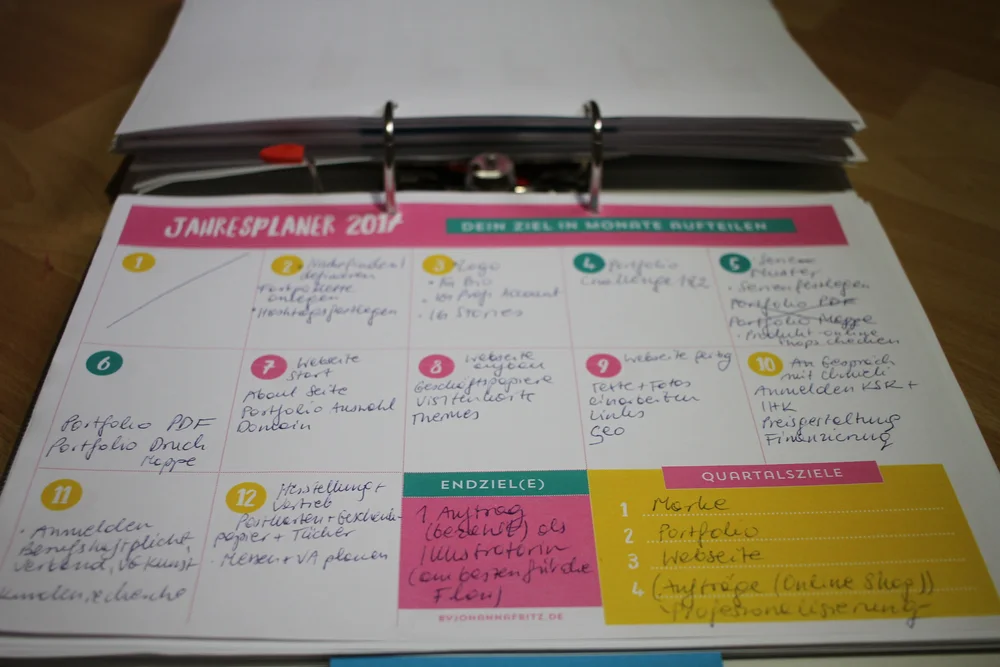 JAHRESPLANER 2017
DEIN ZIEL IN MONATE AUFTEILEN
1
2
definieren
anlegen
3 Logo
• für Bio
• 1er Profi Account
• 1G Stories
4 Portfolio
Challenge 1&2
5
Muster
• Serien festlegen
Portfolio PDF
Portfolio Mappe
• Produkt online
shops checken
6
Portfolio PDF
Portfolio Druck
Mappe
7 Webseite
Start
About Seite
Portfolio Auswahl
Domain
8 Webseite
aufbau
Geschäftspapiere
Visitenkarte
Themes
9 Webseite fertig
Texte + Fotos
einarbeiten
Links
Seo
10 An Gespräch
mit
Anmelden KSK +
IHK
Preisgestaltung
Finanzierung
11
• Anmelden
Berufshaftpflicht
Verband, VG Kunst
Kundenrecherche
12 Herstellung +
Vertrieb
Postkarten + Geschenk-
papier + Tücher
• Messen + VA planen
ENDZIEL(E)
1 Auftrag
(bezahlt) als
Illustratorin
(am besten für die
Flow)
QUARTALSZIELE
1 Marke
2 Portfolio
3 Webseite
4 (Aufträge (Online Shop))
Professionalisierung
BYJOHANNAFRITZ.DE